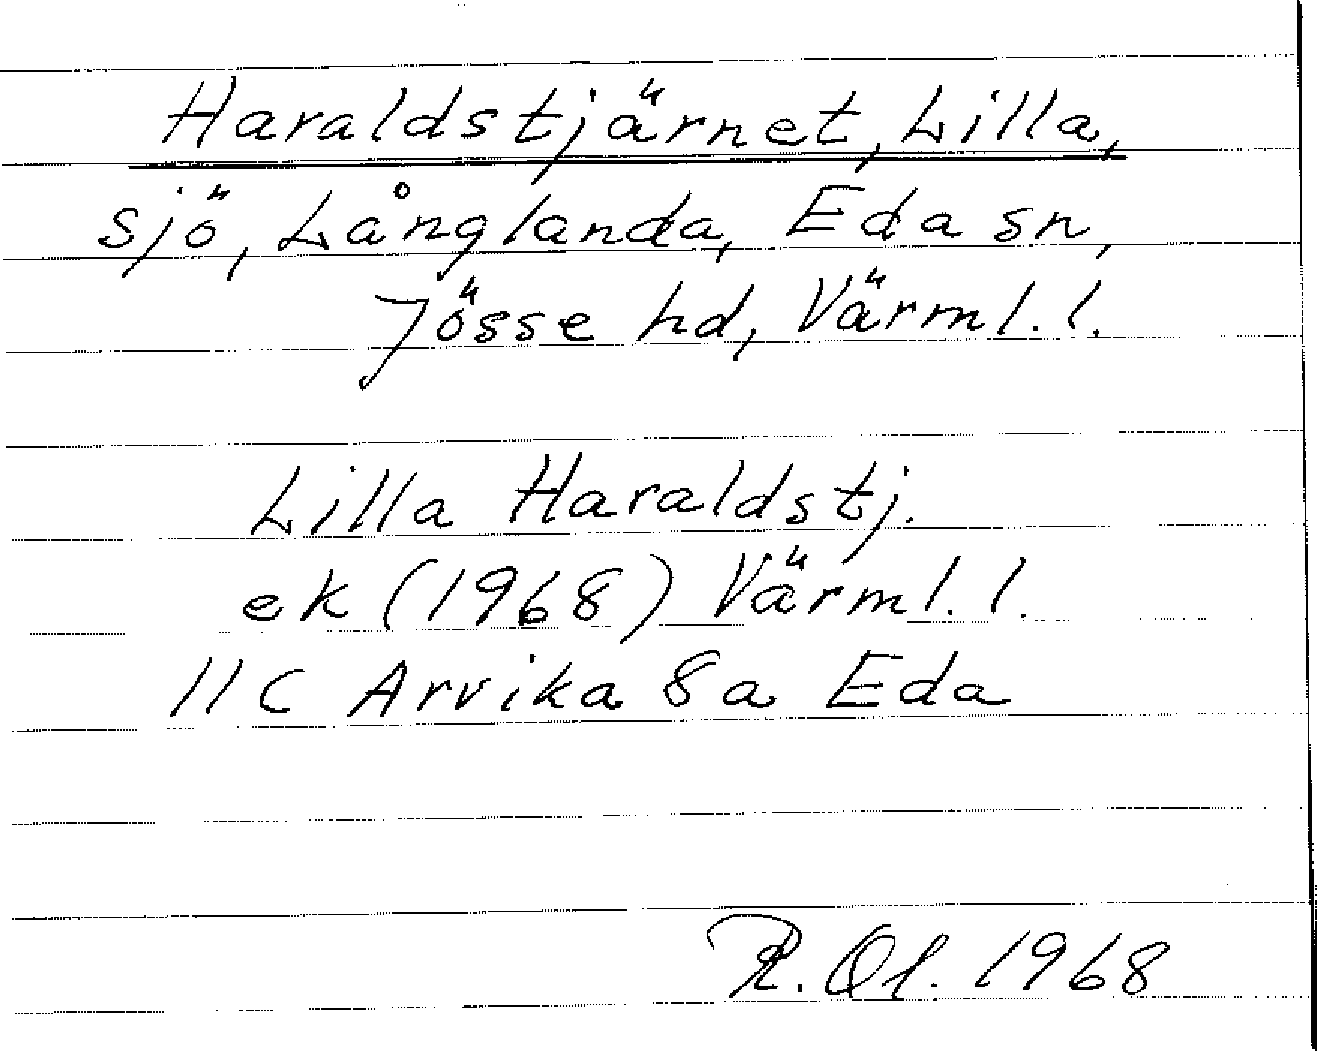 Haraldstjärnet, Lilla,
sjö, Långlanda, Eda sn,
Jösse hd, Värml. l.
Lilla Haraldstj.
ek (1968) Värml. l.
11C Arvika 8a Eda
R. Ol. 1968